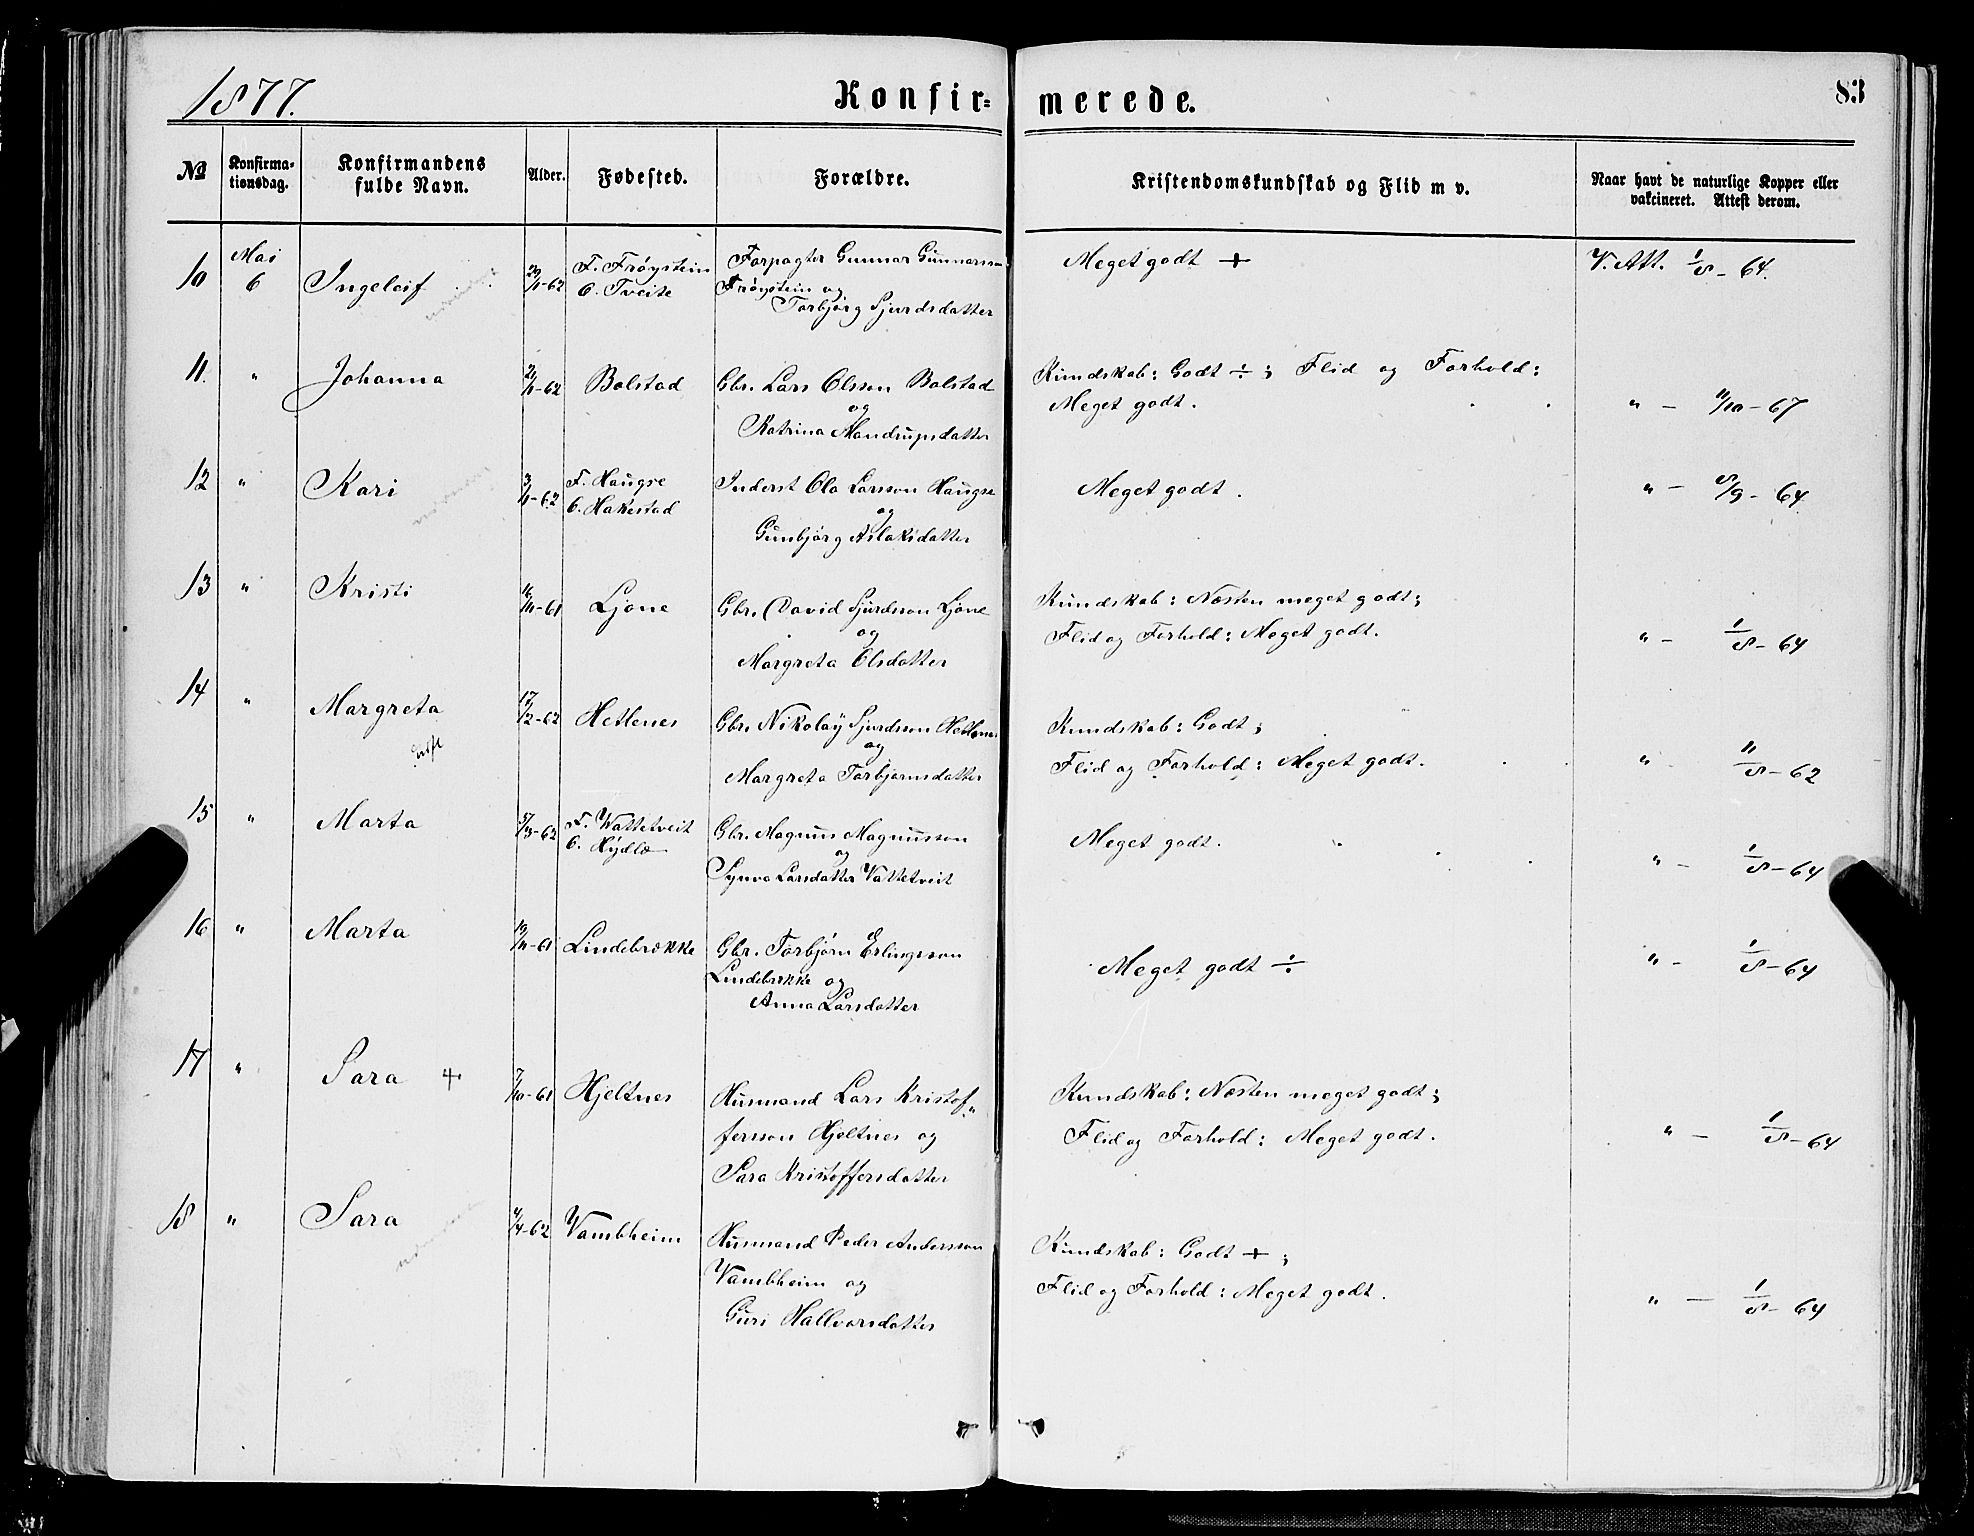 1877.
Konfir=
merede.
83
No
Konfirma-
tionsdag.
Konfirmandens
fulde Navn.
Alder.
Fødested.
Forældre.
Kristendomskundskab og Flid m v.
Naar havt de naturlige Kopper eller
vakcineret. Attest derom.
10 Mai 6 Ingeleif -62 F. Frøystein
b. Tveite
Forpagter Gunnar Gunnarsson
Frøystein og
Torbjørg Sjurdsdatter
Meget godt +
V. Att. 1/8 - 64.
11. " Johanna 21/1-62 Bolstad
Gbr. Lars Olsson Bolstad
og
Katrina Mandrupsdatter
Kundskab: Godt ÷; Flid og Forhold:
Meget godt.
" - 11/10 - 67
12 " Kari 3/1-62 F. Haugse
b. Hakestad
Inderst Ola Larsson Haugse
og
Gunbjørg Aslaksdatter
Meget godt.
" - 8/9 - 64
13 " Kristi 16/11-61 Ljone
Gbr. David Sjurdsson Ljone
og
Margreta Olsdatter
Kundskab: Næsten meget godt;
Flid og Forhold: Meget godt.
" - 1/8 - 64
14 " Margreta 17/2-62 Hetlenes
Gbr. Nikolaÿ Sjurdsson Hetlenes
og
Margreta Torbjørnsdatter
Kundskab: Godt;
Flid og Forhold: Meget godt.
" - 11/8 - 62
15 " Marta 5/3-62 F. Wattetveit
b. Hýdle
Gbr. Magnus Magnusson
og
Synva Larsdatter Vattetveit
Meget godt.
" - 1/8 - 64
16 " Marta 19/11-61 Lindebrekke
Gbr. Torbjørn Erlingsson
Lindebrekke og
Anna Larsdatter
Meget godt ÷
" - 1/8 - 64
17 " Sara + 7/10-61 Hjeltnes
Husmand Lars Kristof-
fersson Hjeltnes og
Sara Kristoffersdatter
Kundskab: Næsten meget godt;
Flid og Forhold: Meget godt.
" - 1/8 - 64
18 " Sara 4/4-62 Vambheim
Husmand Peder Andersson
Vambheim og
Guri Hallvorsdatter
Kundskab: Godt +;
Flid og Forhold: Meget godt.
" - 1/8 - 64